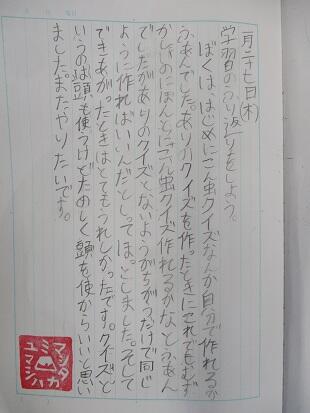 一月二十七日(木)
学習のふり返りをしよう。
ぼくは、はじめにこん虫クイズなんか自分で作れるか
ふあんでした。ありのクイズを作たときにこれでもむず
かしいのにほんとにこん虫クイズ作れるかなとふあん
でしたがありのクイズとないようがちがうだけで同じ
ように作ればいいんだとしってほっとしました。そして
できあがったときはとてもうれしかったです。クイズと
いうのは頭も使うけどたのしく頭を使からいいと思い
ました。またやりたいです。